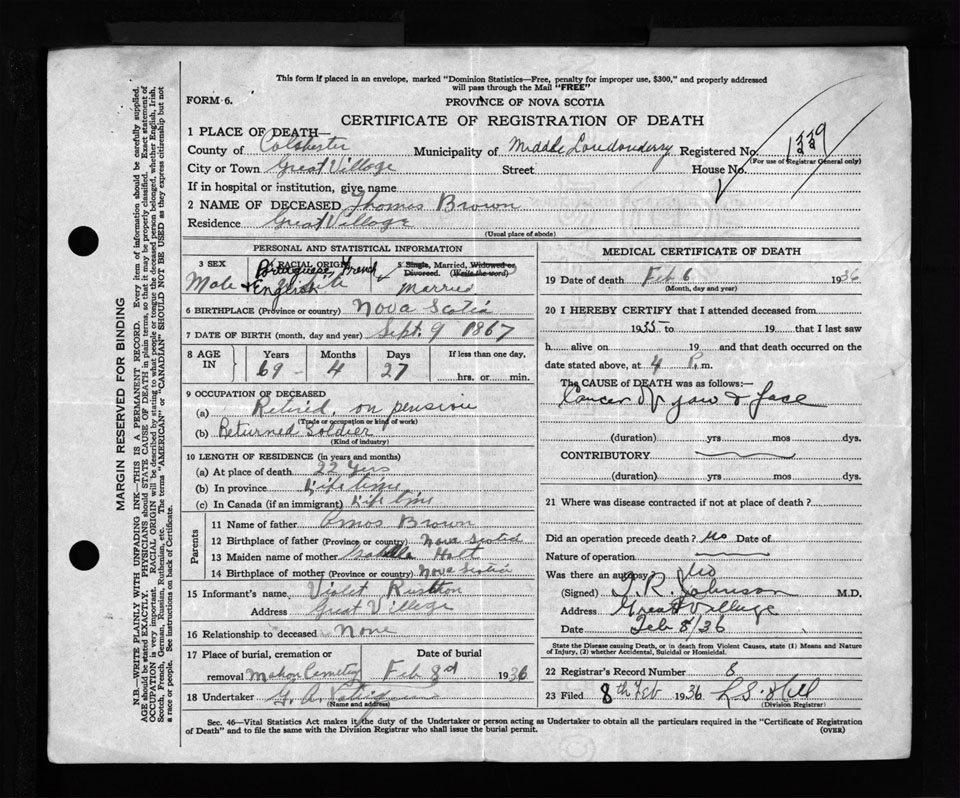 This form if placed in an envelope, marked "Dominion Statistics—Free, penalty for improper use, $300," and properly addressed
will pass through the Mail "FREE"
FORM 6.
PROVINCE OF NOVA SCOTIA
CERTIFICATE OF REGISTRATION OF DEATH
1 PLACE OF DEATH—
County of Colchester Municipality of Middle Londonderry Registered No.
(For use of Registrar General only)
City or Town Great Village Street House No.
If in hospital or institution, give name
2 NAME OF DECEASED Thomas Brown
Residence Great Village
(Usual place of abode)
PERSONAL AND STATISTICAL INFORMATION
3 SEX
Male
4 RACIAL ORIGIN
Portuguese, French
& English White
5 Single, Married, Widowed or
Divorced. (Write the word)
Married
6 BIRTHPLACE (Province or country) Nova Scotia
7 DATE OF BIRTH (month, day and year) Sept. 9 1867
8 AGE IN
Years Months Days If less than one day,
69 - 4 27 hrs. or min.
9 OCCUPATION OF DECEASED
(a) Retired, on pension
(Trade or occupation or kind of work)
(b) Returned Soldier
(Kind of industry)
10 LENGTH OF RESIDENCE (in years and months)
(a) At place of death 22 yrs
(b) In province Life time
(c) In Canada (if an immigrant) Life time
Parents
11 Name of father Amos Brown
12 Birthplace of father (Province or country) Nova Scotia
13 Maiden name of mother Holt
14 Birthplace of mother (Province or country) Nova Scotia
15 Informant's name Violet Rushton
Address Great Village
16 Relationship to deceased None
17 Place of burial, cremation or
removal Mahon Cemetry
Date of burial
Feb 8 1936
18 Undertaker G. A.
(Name and address)
MEDICAL CERTIFICATE OF DEATH
19 Date of death Feb 6 1936
(Month, day and year)
20 I HEREBY CERTIFY that I attended deceased from
1935 to 19 that I last saw
h alive on 19 and that death occurred on the
date stated above, at 4 P. m.
The CAUSE of DEATH was as follows:—
Cancer of jaw & face
(duration) yrs mos dys.
CONTRIBUTORY
(duration) yrs mos dys.
21 Where was disease contracted if not at place of death?
Did an operation precede death? No Date of
Nature of operation
Was there an autopsy? No
(Signed) T. R. Johnson M.D.
Address Great Village
Date Feb 8/36
State the Disease causing Death, or in death from Violent Causes, state (1) Means and Nature
of Injury, (2) whether Accidental, Suicidal or Homicidal.
22 Registrar's Record Number 8
23 Filed 8th Feb 1936 L. S. Hill
(Division Registrar)
Sec. 46—Vital Statistics Act makes it the duty of the Undertaker or person acting as Undertaker to obtain all the particulars required in the "Certificate of Registration
of Death" and to file the same with the Division Registrar who shall issue the burial permit.
(OVER)
MARGIN RESERVED FOR BINDING
N.B.—WRITE PLAINLY WITH UNFADING INK—THIS IS A PERMANENT RECORD. Every item of information should be carefully supplied.
AGE should be stated EXACTLY. PHYSICIANS should STATE CAUSE OF DEATH in plain terms, so that it may be properly classified. Exact statement of
OCCUPATION is very important. RACIAL ORIGIN will be described by stating to what people or tongue the deceased person belonged, whether English, Irish,
Scotch, French, German, Russian, Ruthenian, etc. The terms "AMERICAN" or "CANADIAN" SHOULD NOT BE USED as they express citizenship but not
a race or people. See instructions on back of Certificate.